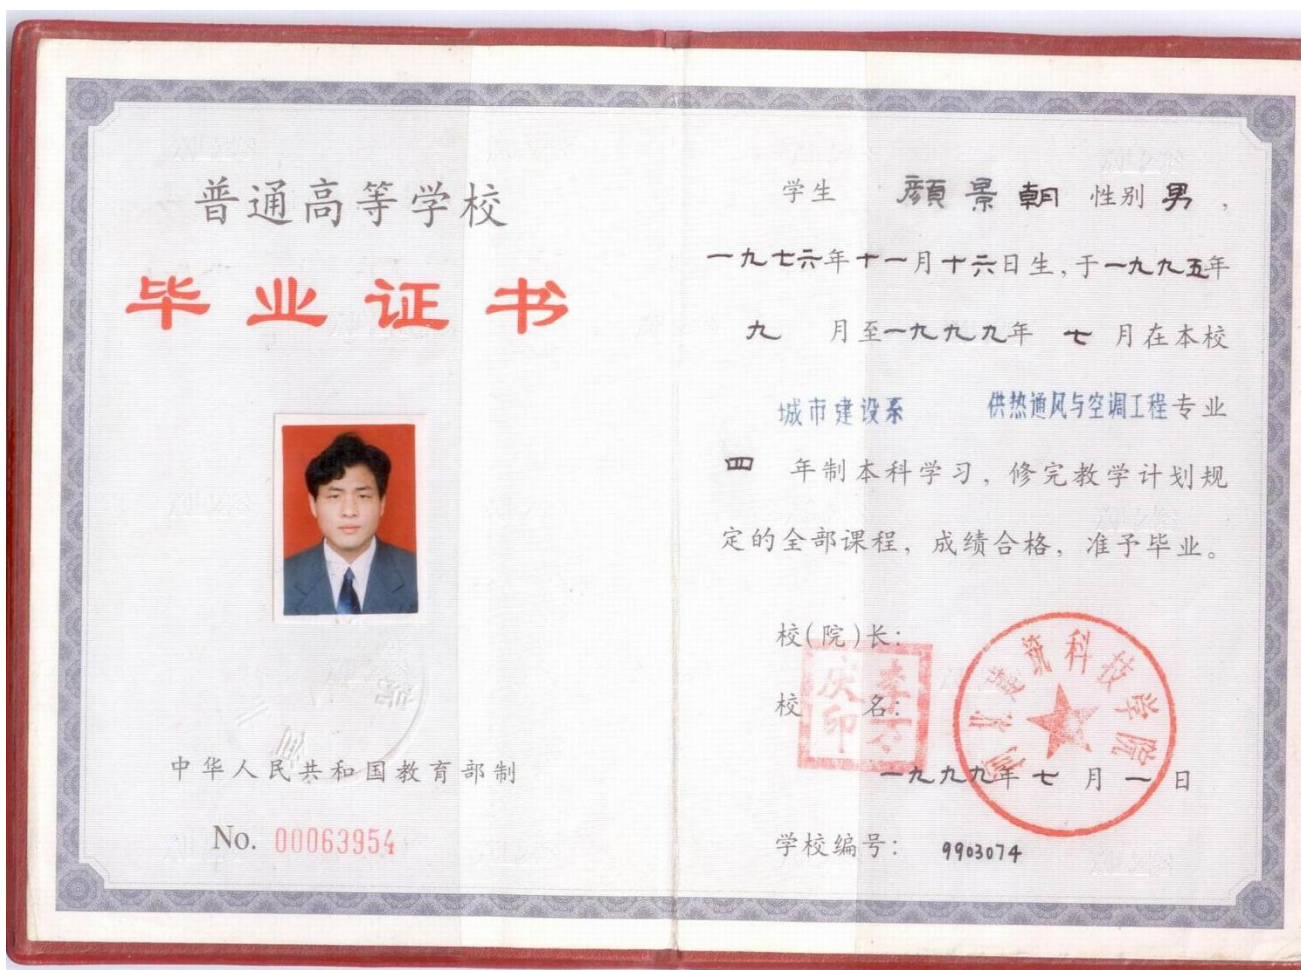 普通高等学校
毕业证书
中华人民共和国教育部制
No. 00063954
学生 顏景朝 性别 男,
一九七六年十一月十六日生,于一九九五年
九 月至一九九九年 七 月在本校
城市建设系 供热通风与空调工程专业
四 年制本科学习, 修完教学计划规
定的全部课程, 成绩合格, 准予毕业。
校(院)长:
校 名:
河北建筑科技学院
一九九九年七月一日
学校编号: 9903074